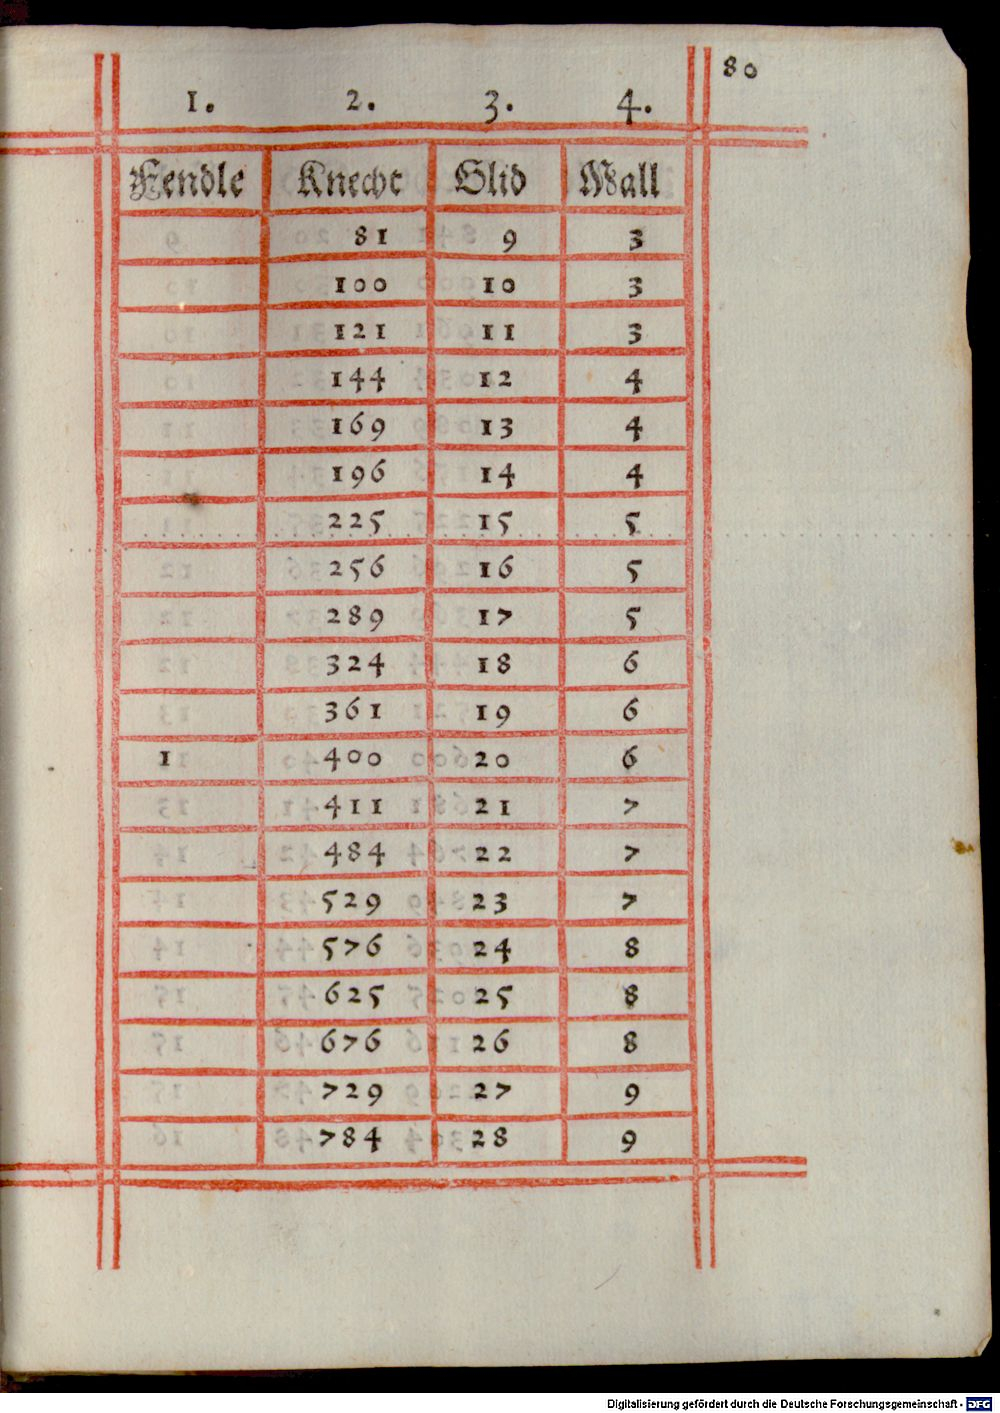 80
1. 2. 3. 4.
Fendle Knecht Glid Wall
81 9 3
100 10 3
121 11 3
144 12 4
169 13 4
196 14 4
225 15 5
256 16 5
289 17 5
324 18 6
361 19 6
1 400 20 6
411 21 7
484 22 7
529 23 7
576 24 8
625 25 8
676 26 8
729 27 9
784 28 9
Digitalisierung gefördert durch die Deutsche Forschungsgemeinschaft - DFG